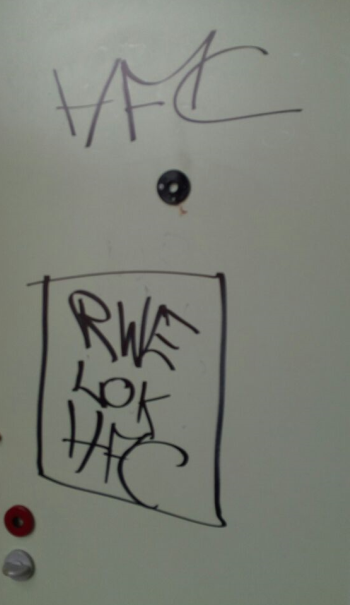 HFC
RWE
LOK
HFC